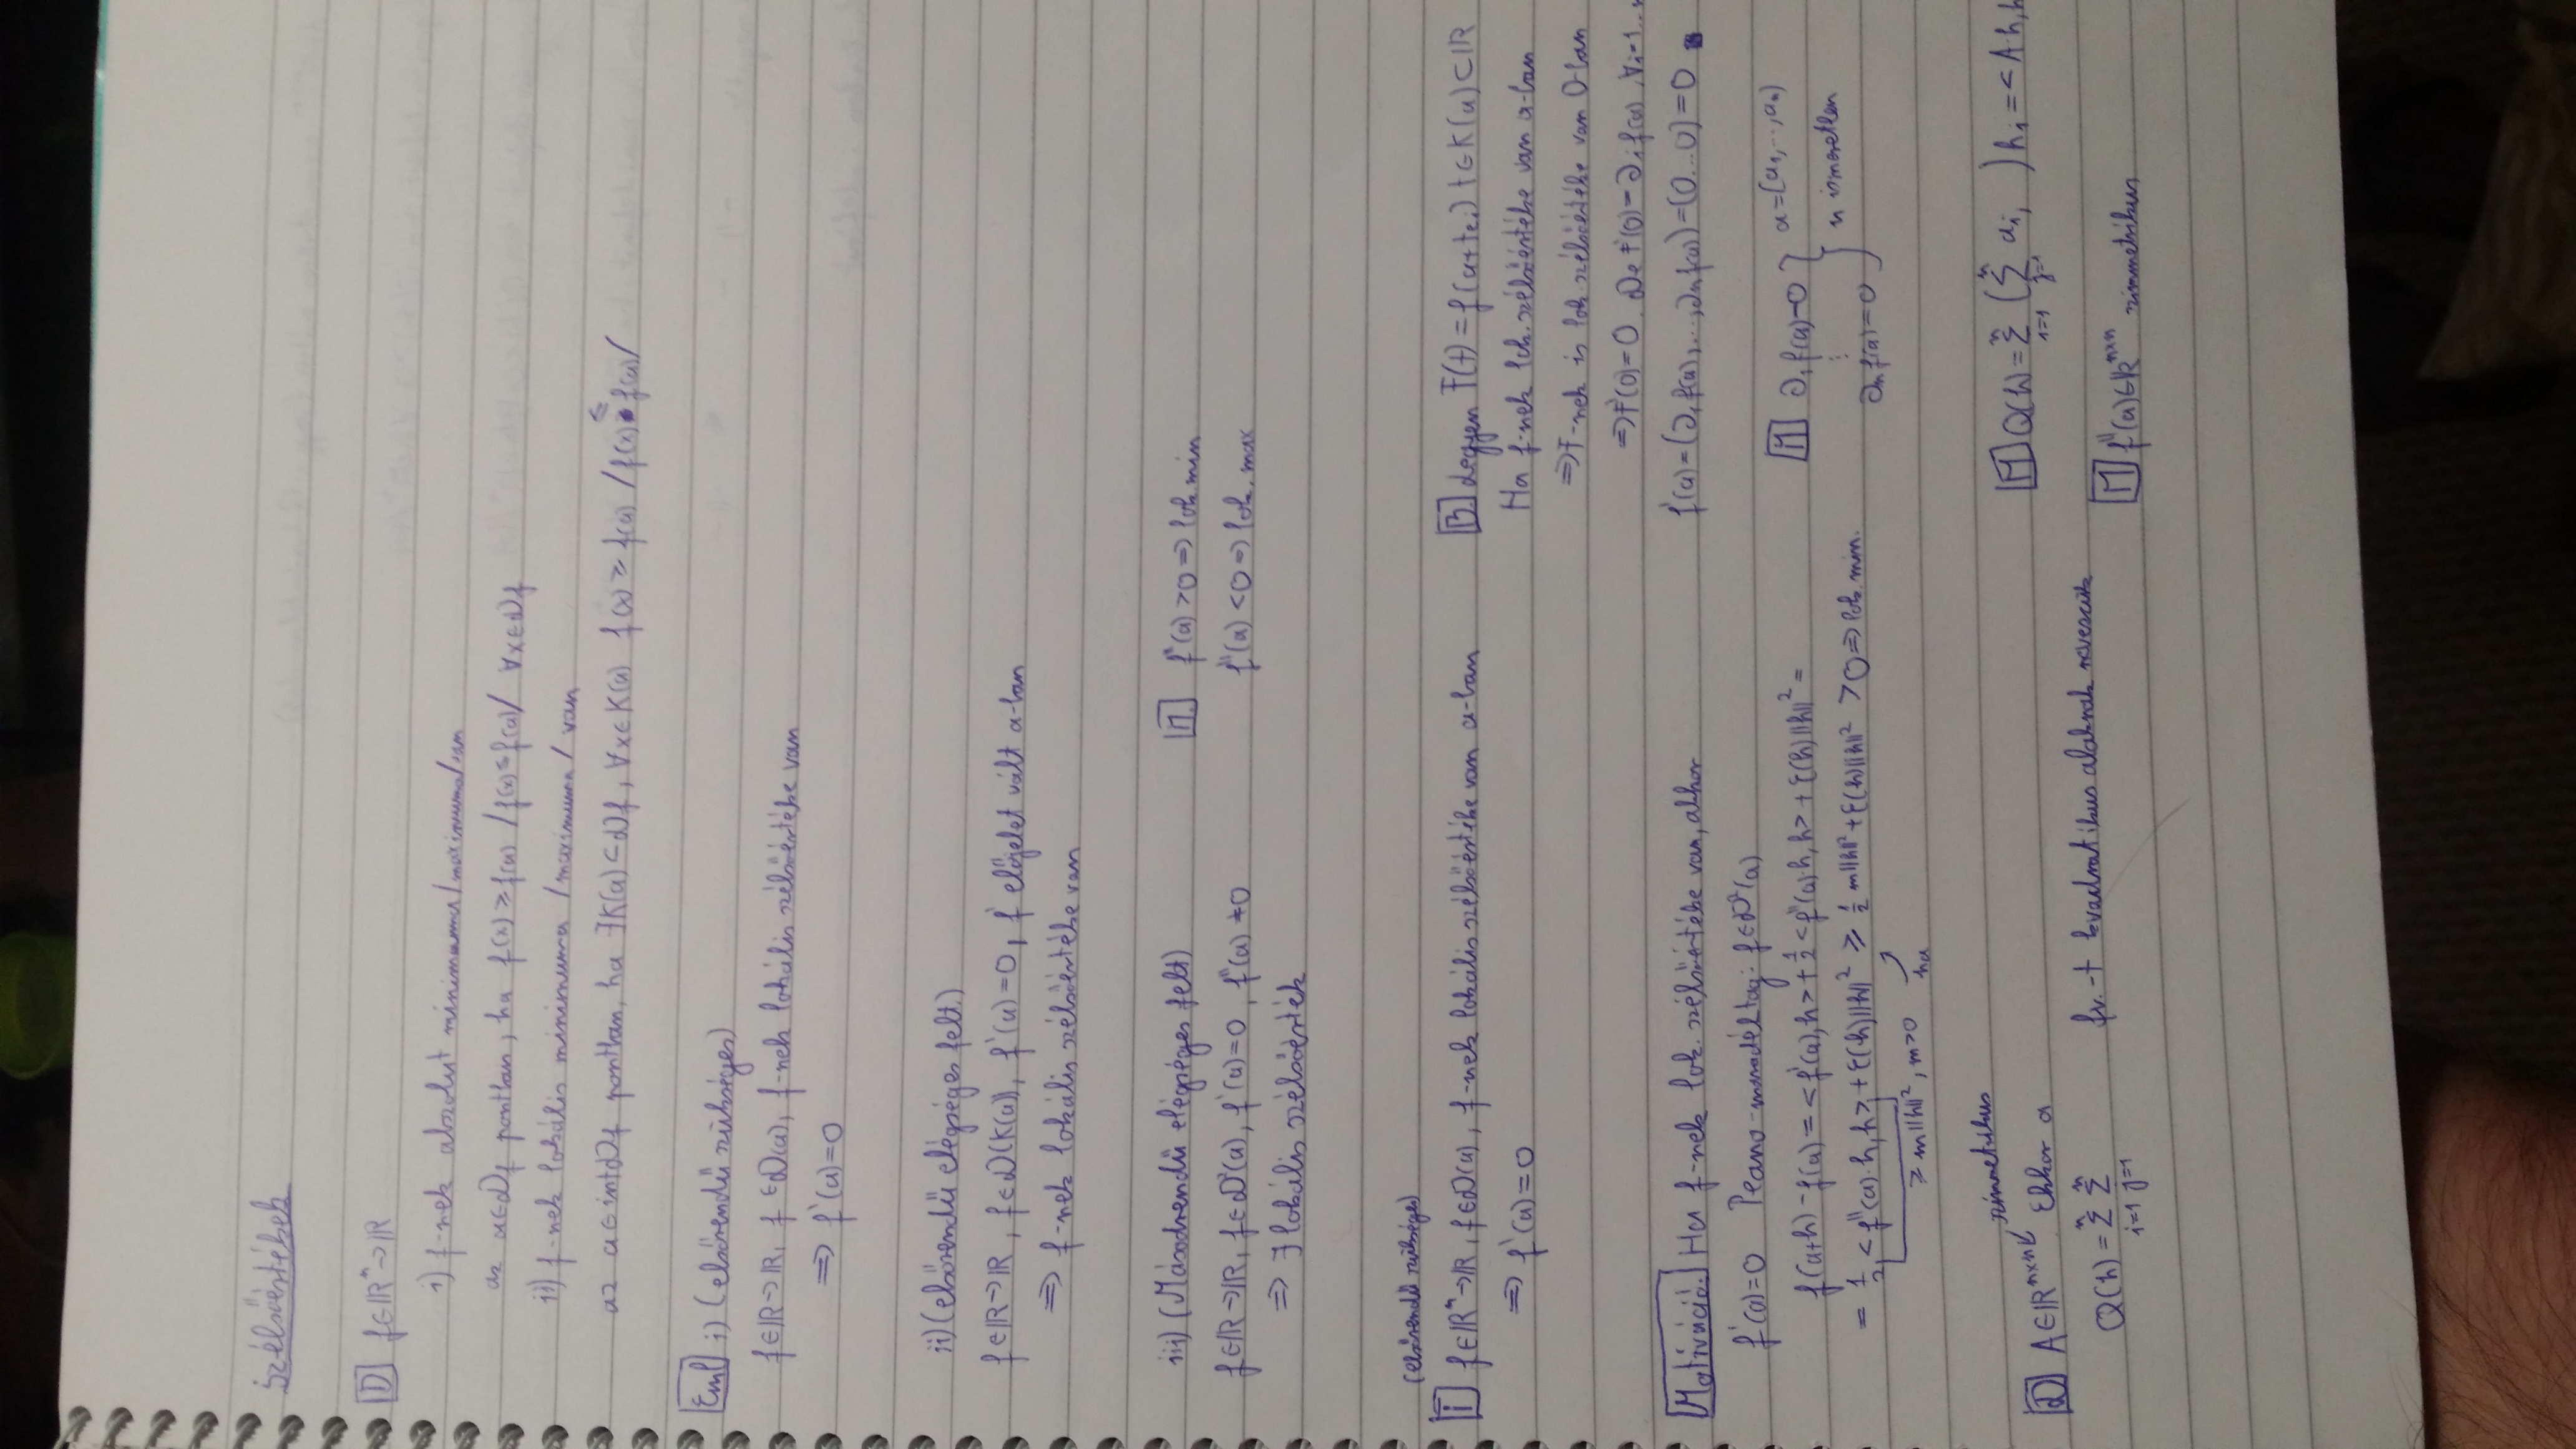 Szélsőértékek
D f∈ℝⁿ→ℝ
i) f-nek abszolut minimuma/maximuma/van
az a∈D_f pontban, ha f(x)≥f(a) /f(x)≤f(a)/ ∀x∈D_f
ii) f-nek lokális minimuma /maximuma/ van
az a∈intD_f pontban, ha ∃K(a)⊂D_f, ∀x∈K(a) f(x)≥f(a) /f(x)≤f(a)/
Eml i) (elsőrendű szükséges)
f∈ℝ→ℝ, f∈D(a), f-nek lokális szélsőértéke van
⇒ f'(a)=0
ii) (elsőrendű elégséges felt.)
f∈ℝ→ℝ, f∈D(K(a)), f'(a)=0, f' előjelet vált a-ban
⇒ f-nek lokális szélsőértéke van
iii) (Másodrendű elégséges felt)
f∈ℝ→ℝ, f∈D²(a), f'(a)=0, f''(a)≠0
⇒ ∃lokális szélsőérték
M. f''(a)>0⇒lok.min
f''(a)<0⇒lok.max
(elsőrendű szükséges)
T f∈ℝⁿ→ℝ, f∈D(a), f-nek lokális szélsőértéke van a-ban
⇒ f'(a)=0
B. Legyen F(t)=f(a+te_i) t∈K(a)⊂ℝ
Ha f-nek lok.szélsőértéke van a-ban
⇒F-nek is lok.szélsőértéke van 0-ban
⇒F'(0)=0. De F'(0)=∂_i f(a), ∀i=1..
f'(a)=(∂₁f(a),...,∂ₙf(a))=(0...0)=0
Motiváció. Ha f-nek lok. szélsőértéke van, akkor
f'(a)=0 Peano-maradéktag: f∈D²(a)
f(a+h)-f(a)=<f'(a),h>+½<f''(a)·h,h>+ε(h)||h||²=
=½<f''(a)·h,h>+ε(h)||h||²≥½m||h||²+ε(h)||h||²>0⇒lok.min.
≥m||h||², m>0 ha
M ∂₁f(a)=0
⋮
∂ₙf(a)=0
a=(a₁,...,aₙ)
n ismeretlen
szimmetrikus
D A∈ℝⁿˣⁿ Ekkor a
Q(h)=∑_{i=1}^n ∑_{j=1}^n fv.-t kvadratikus alaknak nevezzük
M Q(h)=∑_{i=1}^n (∑_{j=1}^n a_i, )h_i=<A·h,h
M f''(a)∈ℝⁿˣⁿ szimmetrikus